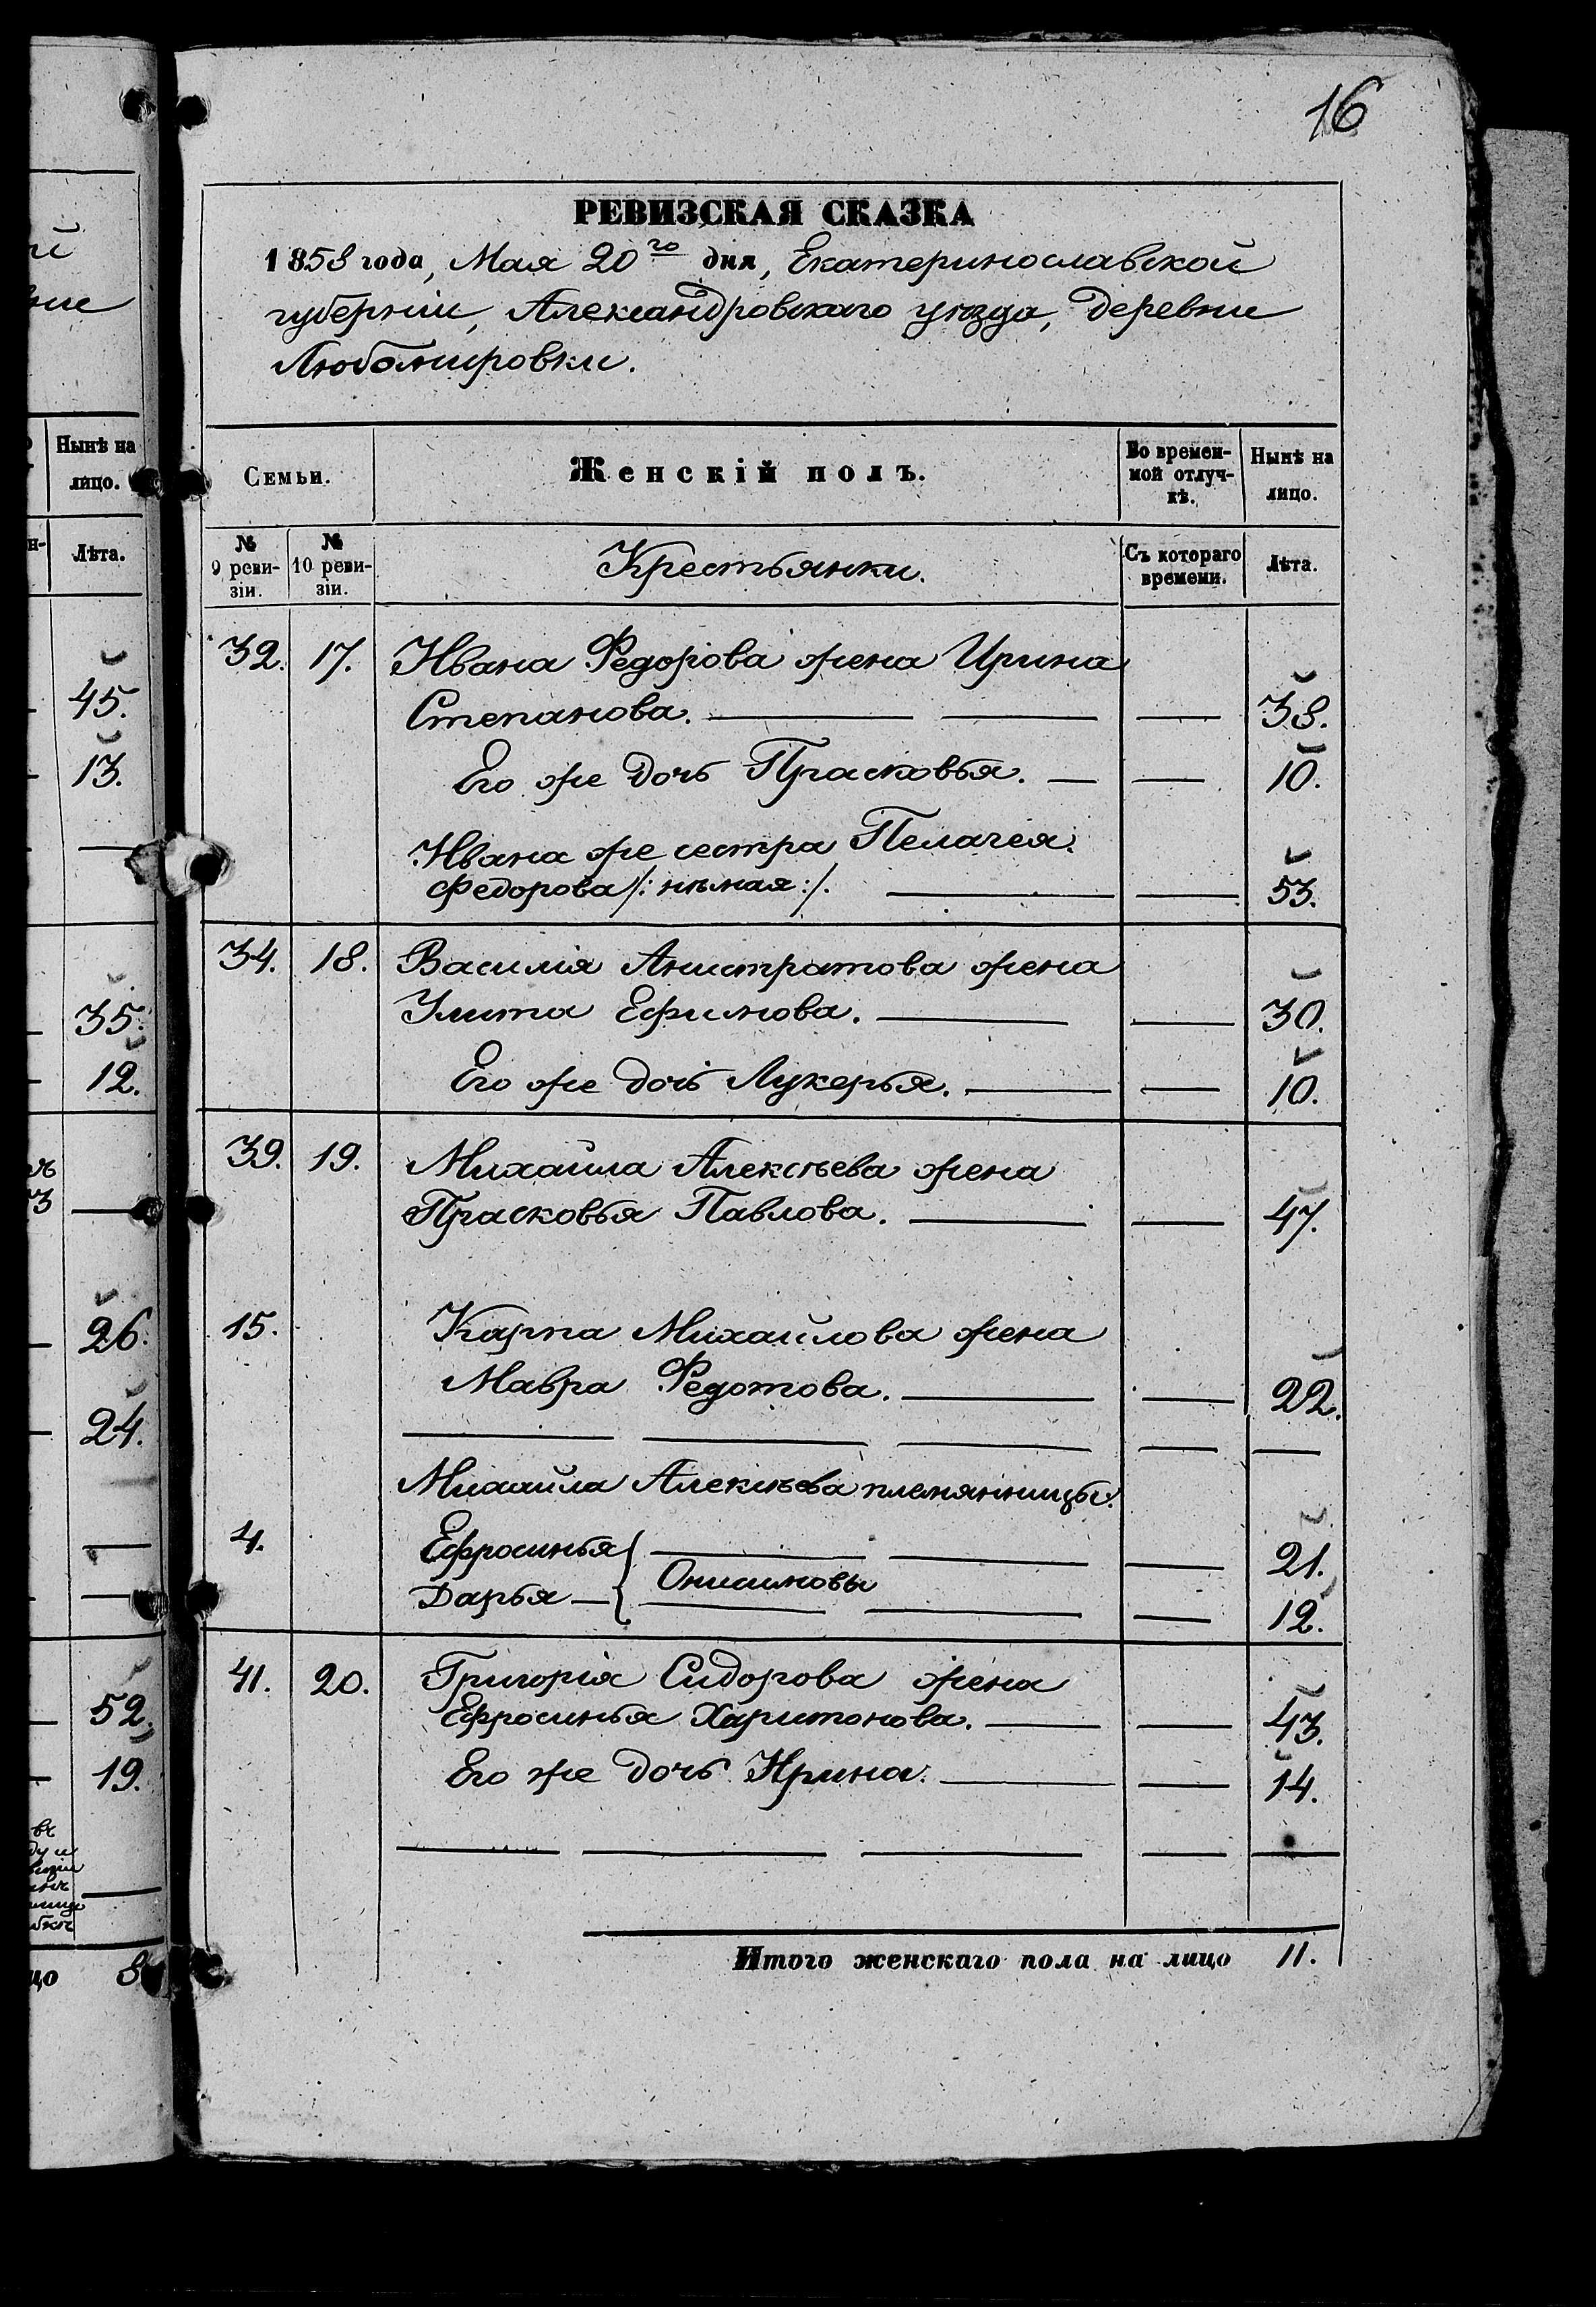 16
РЕВИЗСКАЯ СКАЗКА
1858 года, Мая 20го дня, Екатеринославской
губерніи, Александровскаго уѣзда, деревни
Любомировки.
Семьи.
Женскій полъ.
Во времен-
ной отлуч-
кѣ.
Нынѣ на
лицо.
№
9 реви-
зіи.
№
10 реви-
зіи.
Крестьянки.
Съ котораго
времени.
Лѣта.
32. 17. Ивана Федорова жена Ирина
Степанова. — — — 38.
Его же дочь Прасковья. — — 10.
Ивана же сестра Пелагея
Федорова /: нѣмая :/. — — 53.
34. 18. Василія Анистратова жена
Улита Ефимова. — — 30.
Его же дочь Лукерья. — — 10.
39. 19. Михайла Алексѣева жена
Прасковья Павлова. — — 47.
15. Карпа Михайлова жена
Мавра Федотова. — — 22.
Михайла Алексѣева племянницы:
4. Ефросинья { — — — 21.
Онисимовы
Дарья — { — — — 12.
41. 20. Григорія Сидорова жена
Ефросинья Харитонова. — — 43.
Его же дочь Ирина. — — 14.
Итого женскаго пола на лицо 11.
Нынѣ на
лицо.
Лѣта.
45.
13.
35.
12.
26.
24.
52.
19.
8